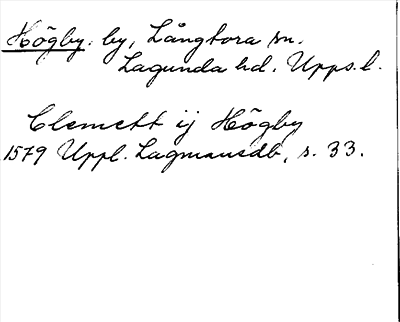 Högby: by, Långtora sn.
Lagunda hd. Upps. l.
Clemett ij Högby
1579 Uppl. Lagmansdb, s. 33.